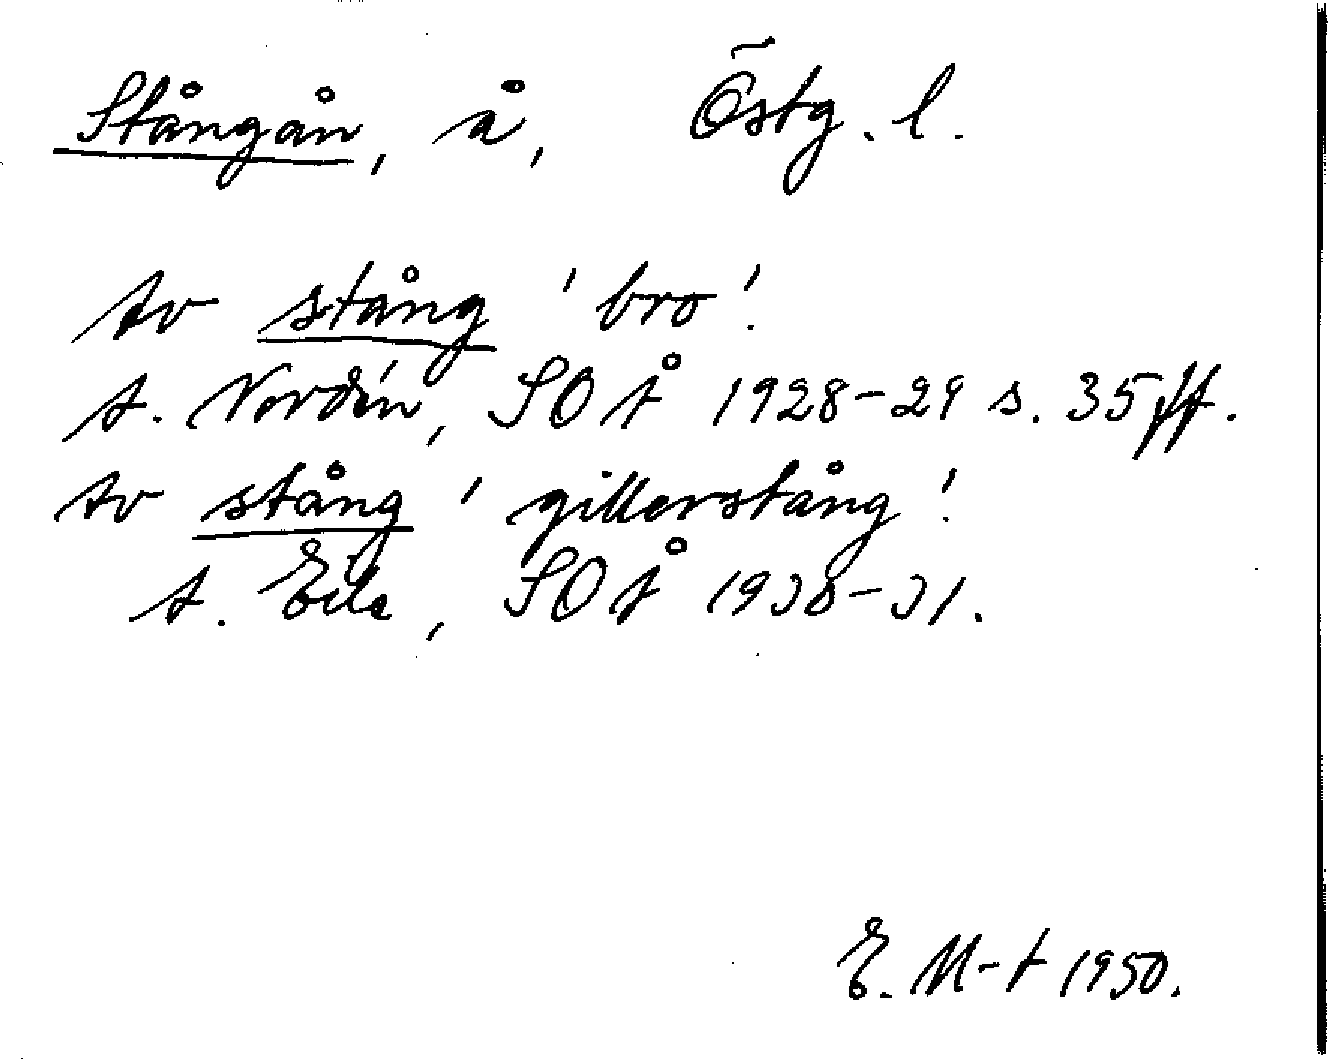 Stångån, å, Östg. l.
Av stång 'bro'.
A. Nordén, SOÅ 1928-29 s. 35 ff.
Av stång 'gillerstång'.
A. Edle, SOÅ 1930-31.
E. M-t 1950.